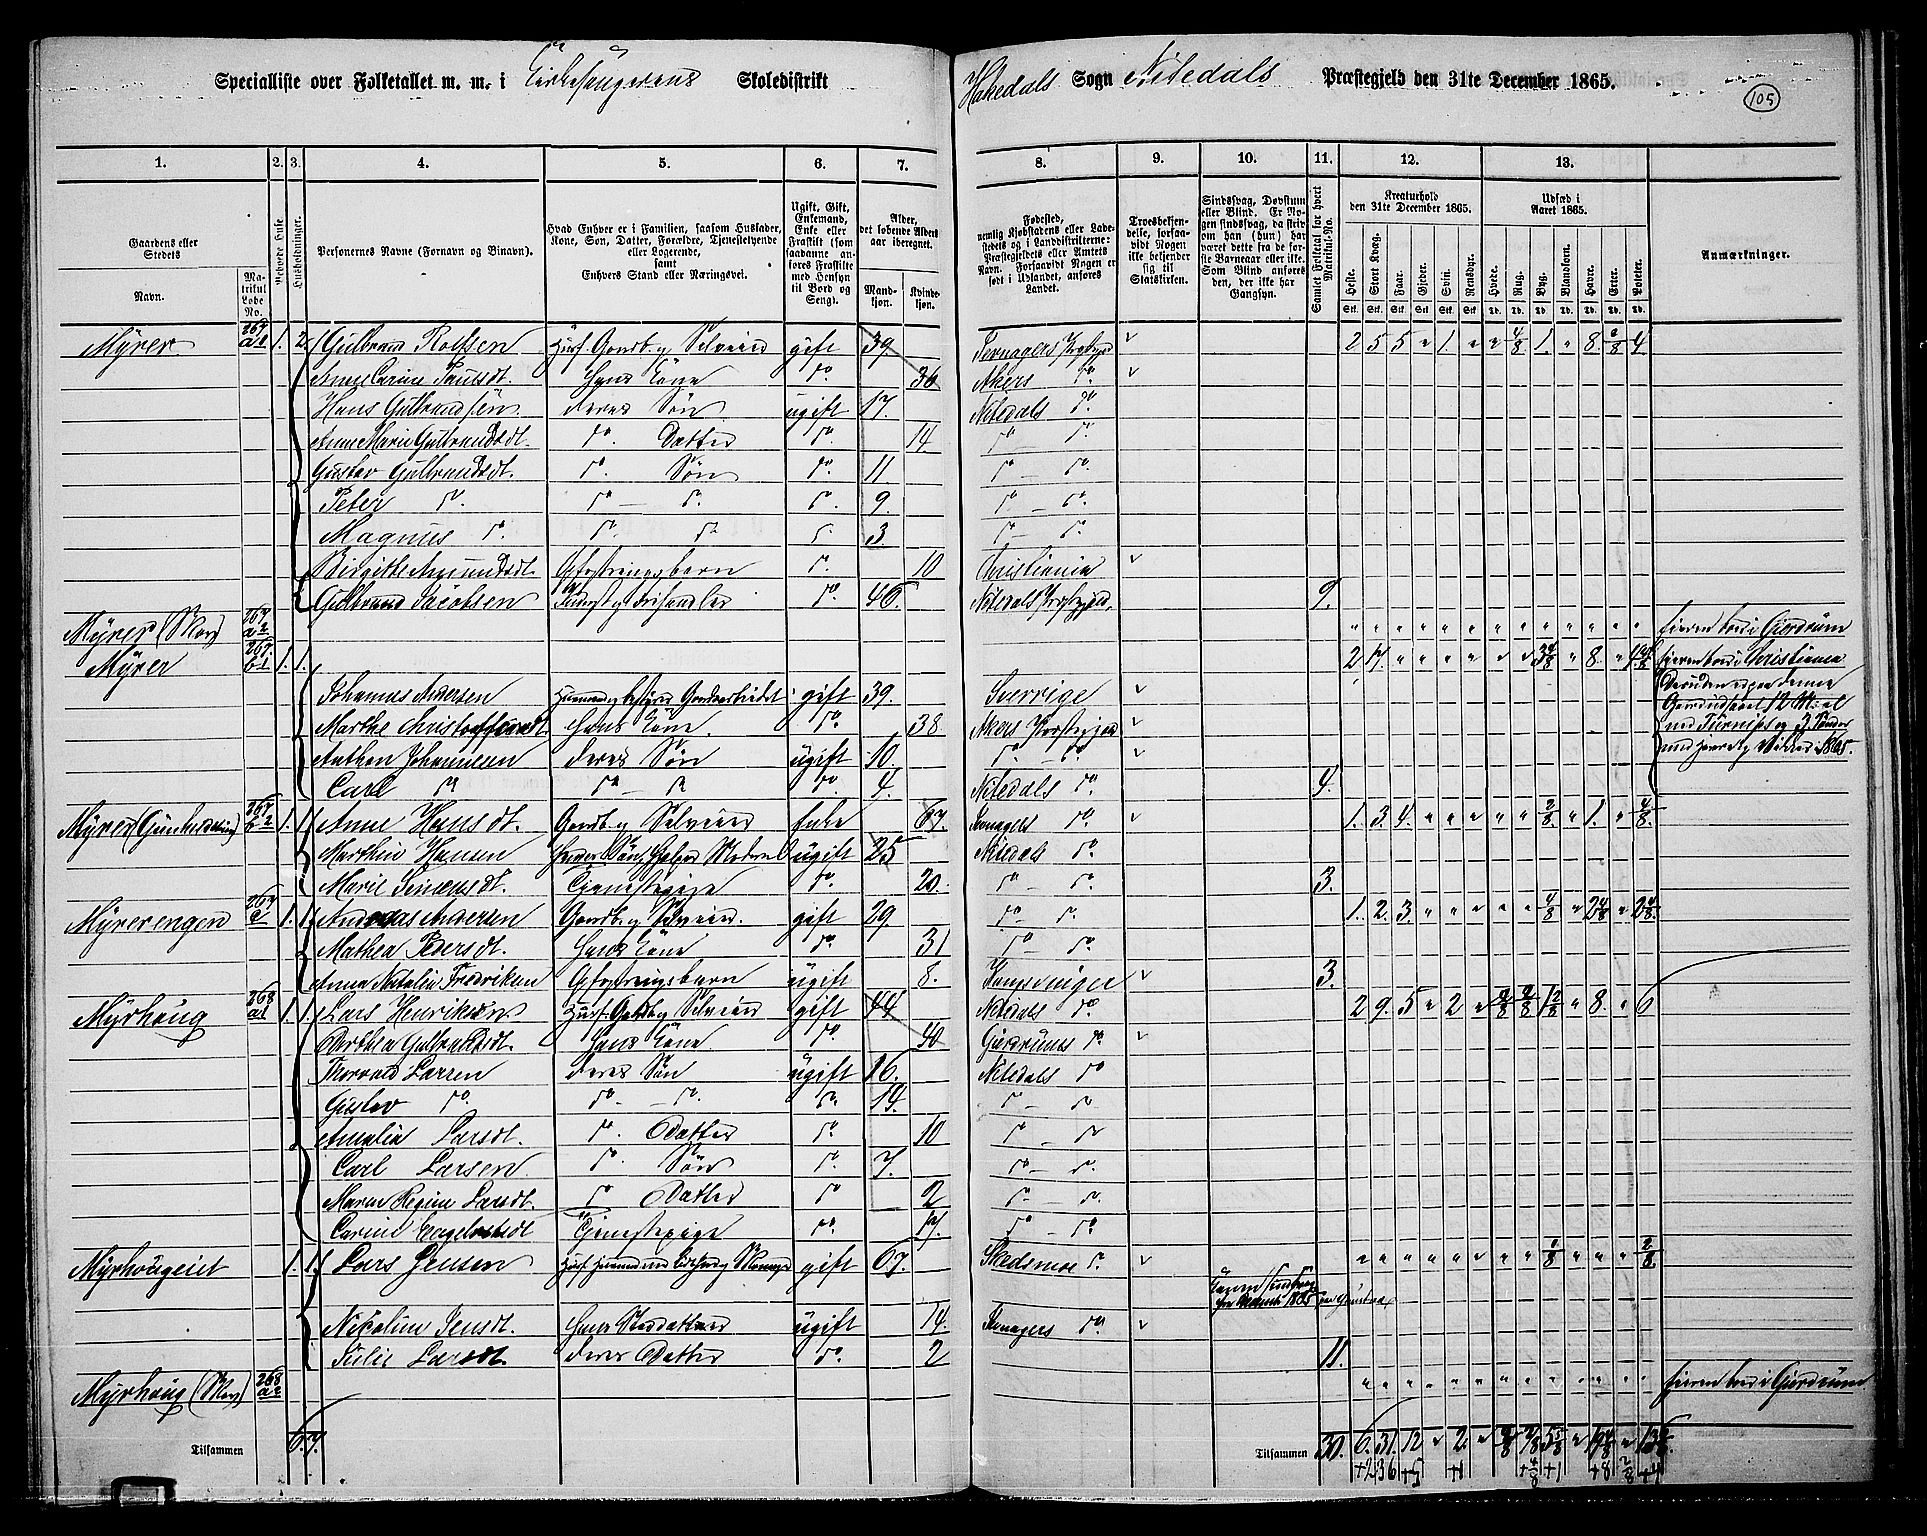 Specialliste over Folketallet m. m. i Kirkesangerens Skoledistrikt
Hakedals Sogn Nitedals Præstegjeld den 31te December 1865.
105
1. 2. 3. 4. 5. 6. 7.
8. 9. 10. 11. 12. 13.
Gaardens eller Stedets Navn.
Matrikul Løbe No.
Beboede Huse
Husholdninger.
Personernes Navne (Fornavn og Binavn).
Hvad Enhver er i Familien, saasom Husfader, Kone, Søn, Datter, Forældre, Tjenestetyende eller Logerende, samt Enhvers Stand eller Næringsvei.
Ugift, Gift, Enkemand, Enke eller Fraskilt (som saadanne anføres Fraskilte med Hensyn til Bord og Seng).
Alder, det løbende Aldersaar iberegnet.
Mandkjøn. Kvindekjøn.
Fødested, nemlig Kjøbstadens eller Ladestedets og i Landdistrikterne: Præstegjeldets eller Amtets Navn. Forsaavidt Nogen er født i Udlandet, anføres Landet.
Troesbekjendelse, forsaavidt Nogen ikke bekjender sig til Statskirken.
Sindssvag, Døvstum eller Blind. Er Nogen sindssvag, da skrives om han (hun) har været dette fra de første Barneaar eller ikke. Som Blind anføres den, der ikke har Gangsyn.
Samlet Folketal for hvert Matrikul-No.
Kreaturhold den 31te December 1865.
Heste. Stort Kvæg. Faar. Gjeder. Svin. Rensdyr.
Udsæd i Aaret 1865.
Hvede. Rug. Byg. Blandkorn. Havre. Erter. Poteter.
Anmærkninger.
Myrer 267 a1 1. 2. Gulbrand Rolfsen Husf. Gaardb. og Selveier gift 39. Præstegjeld 2 5 5 " 1. " " 4/8 1. " 8. 2/8 4.
Anne Carine Paulsdt. Hans Kone do. 36 Akers do.
Hans Gulbrandsen deres Søn ugift 17. Nitedals do.
Anne Marie Gulbrandsdt. do. Datter do. 14 do - do.
Gustav Gulbrandsdt. do. Søn do. 11. do - do.
Peter do. do - do. do. 9. do - do.
Magnus do. do. do do. 3 do - do.
Birgitte Amundsdt. Opfostringsbarn do. 10 Christiania
Gulbrand Jacobsen do. 46. Nitedals Præstegjeld. 9.
Myrer (Skov) 267 a2 Eieren boer i Gjerdrum
Myrer 267 b1 1. 1. 2 17. " " " " " 3 4/8 " 8. " Eieren boer i Christiania
Johannes Andersen gift 39. Sverrige Desuden er paa denne
Marthe Christoffersdt. Hans Kone. do. 38. Akers Præstegjeld Gaard udsaaet 12 Maal
Anthon Johannesen deres Søn ugift 10. do - do. med Turnips og 3 Tønder
Carl do do - do do. 4. Nitedals do. 4. Vikker 1865.
Myrer (Gunhildseng) 267 b2 1. 1. Anne Hansdt. Gaardb. og Selveier Enke 67. do. 1. 3. 4. " " " " " 2/8 " 1. " 4/8
Marthin Hansen Hendes Søn Hjelper Moderen ugift 25 Nitedals do.
Marie Simensdt. Tjenestepige do. 20. do - do. 3.
Myrerengen 267 c 1. 1. Andreas Andersen Gaardb. og Selveier. gift 29. do - do. 1. 2. 3. " " " " " 4/8 " 2 4/8 " 2 4/8
Mathea Pedersdt. Hans Kone do. 31 do - do.
Anna Natalia Fredriksen Opfostringsbarn ugift 8. Kongsvinger 3.
Myrhoug 268 a1 1. 1. Lars Henriksen Husf. Gaardb. og Selveier gift 44 Nitedals do 2 9. 5 " 2 " 2/8 2/8 1 2/8 " 8. " 6
Dorthea Gulbrandsdt. Hans Kone do. 40 Gjerdrums do.
Thorvald Larsen deres Søn ugift 16. Nitedals do
Gustav do. do - do. do. 14. do - do
Amalia Larsdt. do. Datter do. 10 do - do
Carl Larsen do. Søn do. 7. do - do.
Maren Regine Larsdt. do Datter do 2 do - do.
Carine Engebretsdt Tjenestepige do. 17. do - do.
Myrhougeiet 1. 1. Lars Jensen gift 67. Skedsmoe do. " " " " " " " " 1/8 " " " 2/8
Nicoline Jensdt. Hans Steddatter ugift 14. do.
Julie Larsdt. deres Datter do. 2 11.
Myrhoug (Skov) 268 a2 Eieren boer i Gjerdrum
Tilsammen 6. 7.
Tilsammen 30. 6. 31. 12 " 2. " 2/8 7/8 5 5/8 " 19 4/8 "
+2 36 +5 +1 +4/8 +1 +8 2/8 +4